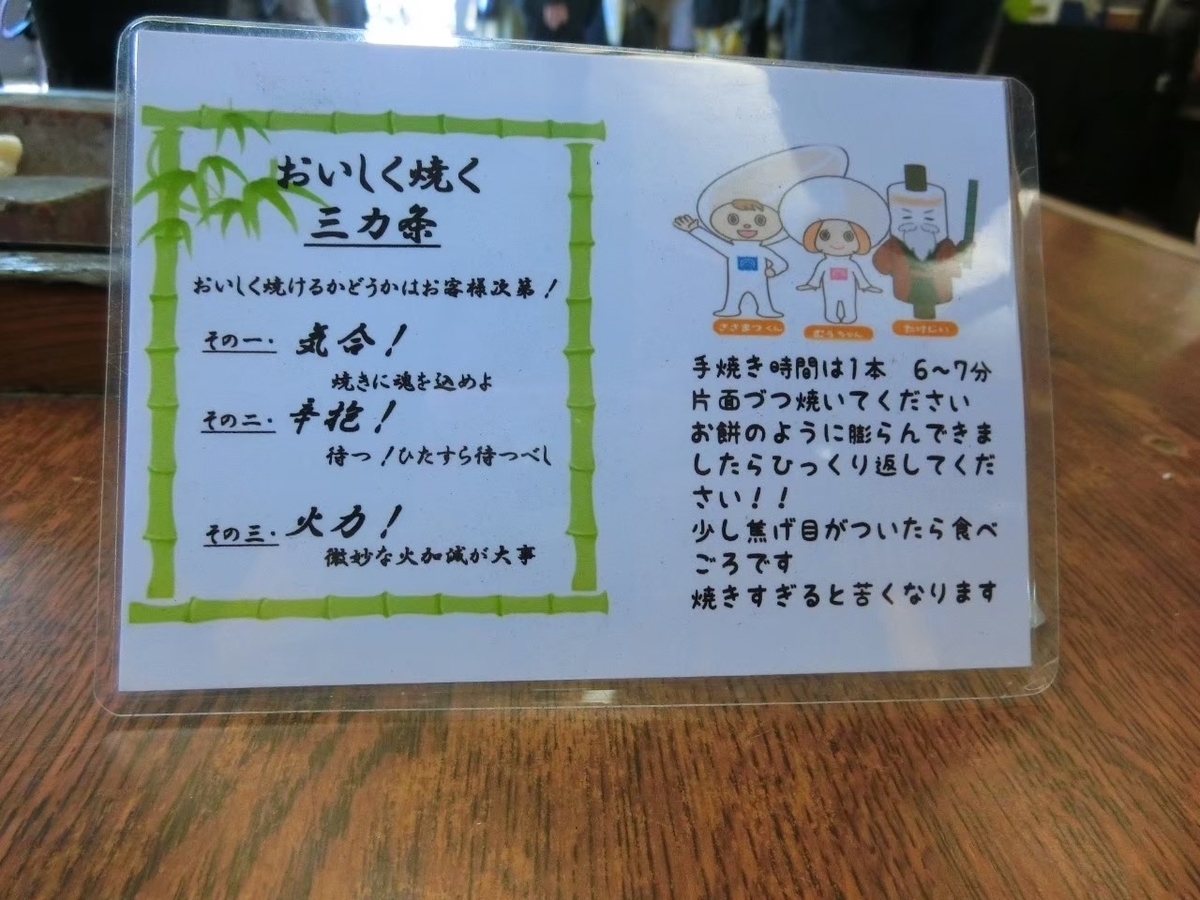 おいしく焼く
三カ条
おいしく焼けるかどうかはお客様次第！
その一・気合！
焼きに魂を込めよ
その二・辛抱！
待つ！ひたすら待つべし
その三・火力！
微妙な火加減が大事
ささまつくん
むうちゃん
たけじい
手焼き時間は1本　6～7分
片面づつ焼いてください
お餅のように膨らんできま
したらひっくり返してくだ
さい！！
少し焦げ目がついたら食べ
ごろです
焼きすぎると苦くなります